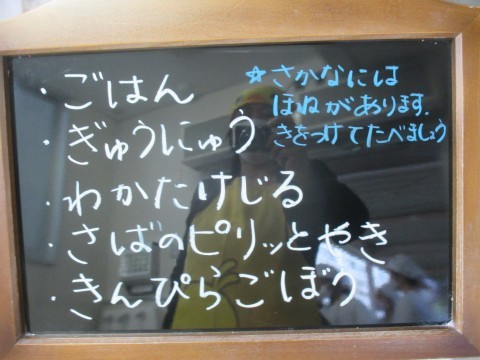 ・ごはん
・ぎゅうにゅう
・わかたけじる
・さばのピリッとやき
・きんぴらごぼう
☆さかなには
ほねがあります.
きをつけてたべましょう